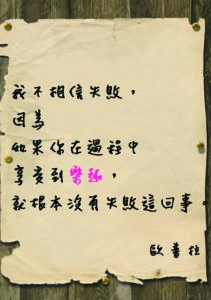 我不相信失敗，
因為
如果你在過程中
享受到樂趣，
就根本沒有失敗這回事。
歐普拉